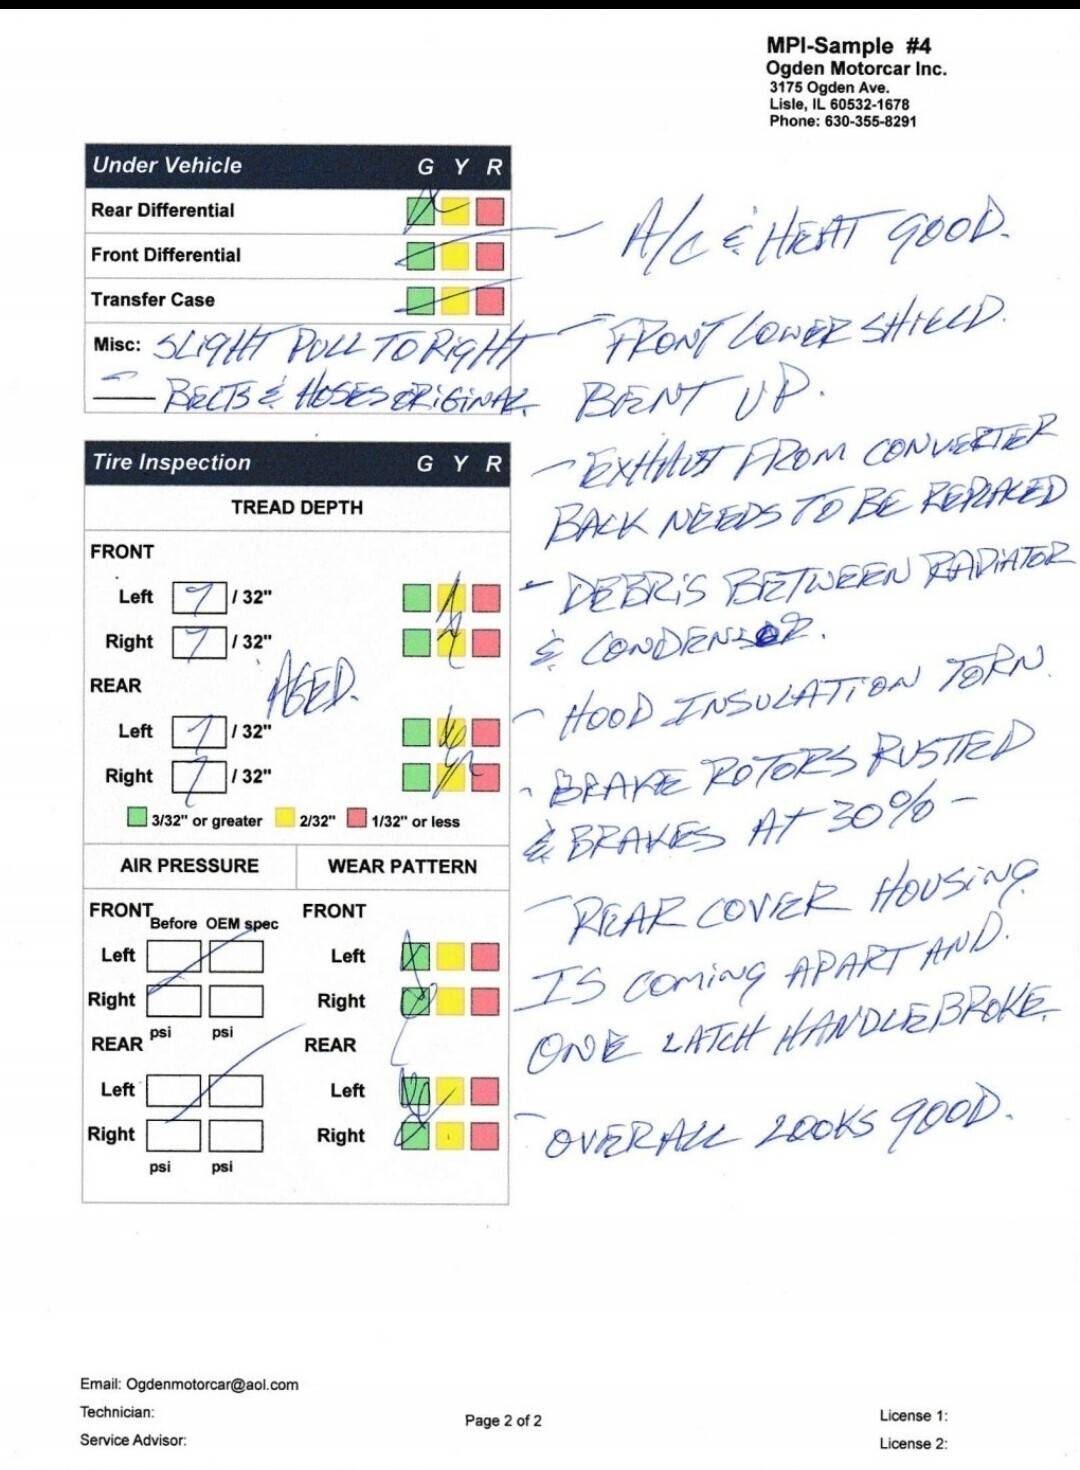 MPI-Sample #4
Ogden Motorcar Inc.
3175 Ogden Ave.
Lisle, IL 60532-1678
Phone: 630-355-8291
Under Vehicle G Y R
Rear Differential
Front Differential
Transfer Case
Misc: SLIGHT PULL TO RIGHT
BELTS & HOSES ORIGINAL
Tire Inspection G Y R
TREAD DEPTH
FRONT
Left 7 / 32"
Right 7 / 32"
AGED.
REAR
Left 7 / 32"
Right 7 / 32"
3/32" or greater 2/32" 1/32" or less
AIR PRESSURE WEAR PATTERN
FRONT Before OEM spec FRONT
Left Left
Right Right
psi psi
REAR REAR
Left Left
Right Right
psi psi
A/C & HEAT GOOD.
- FRONT LOWER SHIELD.
BENT UP.
- EXHAUST FROM CONVERTER
BACK NEEDS TO BE REPLACED
- DEBRIS BETWEEN RADIATOR
& CONDENSOR.
- HOOD INSULATION TORN.
- BRAKE ROTORS RUSTED
& BRAKES AT 30% -
- REAR COVER HOUSING
IS COMING APART AND.
ONE LATCH HANDLE BROKE.
- OVERALL LOOKS GOOD.
Email: Ogdenmotorcar@aol.com
Technician:
Service Advisor:
Page 2 of 2
License 1:
License 2: